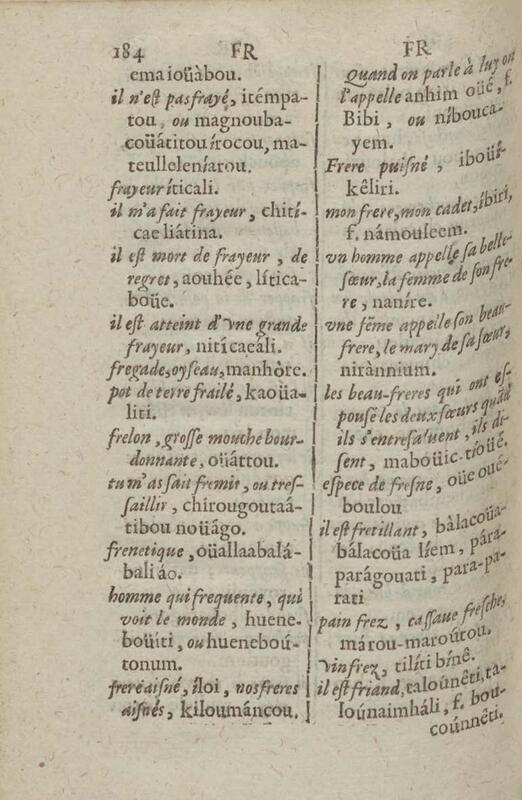 184 FR
emaioüàbou.
il n'est pas frayé, itémpa-
tou, ou magnouba-
coüátitouírocou, ma-
teulleleníarou.
frayeur íticali.
il m'a fait frayeur, chití-
cae liátina.
il est mort de frayeur, de
regret, aouhée, lítica-
boüe.
il est atteint d'vne grande
frayeur, nití caeáli.
fregade, oyseau, manhòre.
pot de terre frailé, kaoüa-
liti.
frelon, grosse mouche bour-
donnante, oüáttou.
tu m'as fait fremir, ou tres-
saillir, chirougoutaá-
tibou noüágo.
frenetique, oüallaabalá-
bali áo.
homme qui frequente, qui
voit le monde, huene-
boüiti, ou hueneboú-
tonum.
frere aisné, íloi, nos freres
aisnés, kiloumáncou.
FR
Quand on parle à luy on
l'appelle anhim oüé, f.
Bibi, ou níbouca-
yem.
Frere puisné, iboüi-
kêliri.
mon frere, mon cadet, íbiri,
f. námouleem.
vn homme appelle sa belle-
sœur, la femme de son fre-
re, naníre.
vne féme appelle son beau-
frere, le mary de sa sœur,
nirànnium.
les beau-freres qui ont es-
pousé les deux sœurs quãd
ils s'entresaluent, ils di-
sent, maboüic-tioüé.
espece de fresne, oüe oué-
boulou
il est fretillant, bàlacoüa-
bálacoüa líem, pára-
parágouati, para-pa-
rati
pain frez, cassaue fresche,
márou-maroútou.
Vin frez, tilíti bínê.
il est friand, talounêti, ta-
loúnaimháli, f. bou-
coúnnêti.